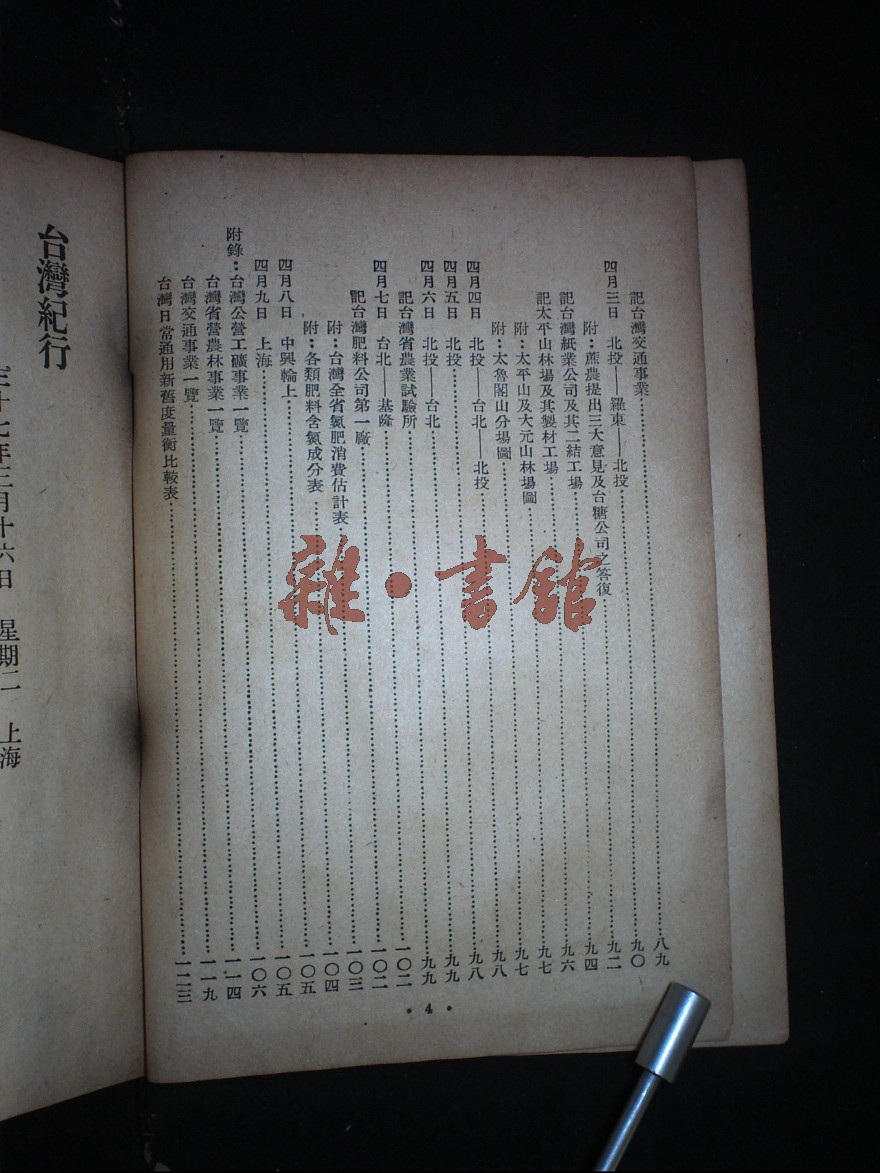 記台灣交通事業……八九
四月三日　北投——羅東——北投……九〇
附：蔗農提出三大意見及台糖公司之答復……九二
記台灣紙業公司及其二結工場……九四
記太平山林場及其製材工場……九六
附：太平山及大元山林場圖……九七
附：太魯閣山分場圖……九七
四月四日　北投——台北——北投……九八
四月五日　北投……九八
四月六日　北投——台北……九九
記台灣省農業試驗所……九九
四月七日　台北——基隆……一〇二
記台灣肥料公司第一廠……一〇二
附：台灣全省氮肥消費估計表……一〇三
附：各類肥料含氮成分表……一〇四
四月八日　中興輪上……一〇五
四月九日　上海……一〇五
附錄：台灣公營工礦事業一覽……一〇六
台灣省營農林事業一覽……一一四
台灣交通事業一覽……一一九
台灣日常通用新舊度量衡比較表……一二三
• 4 •
台灣紀行
十七年三月十六日　星期二　上海
雜・書館